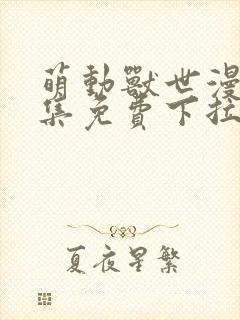 萌動獸世漫
集免費下拉
夏夜星繁